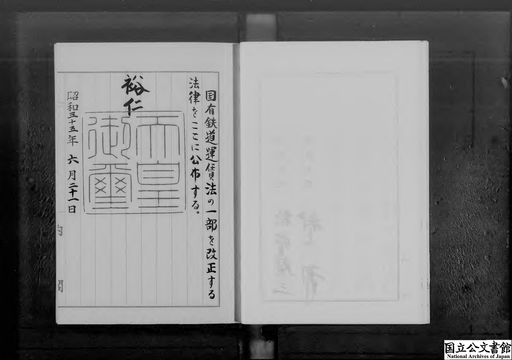 国有鉄道運賃法の一部を改正する
法律をここに公布する。
裕仁
天皇
御璽
昭和三十五年 六月二十一日
国立公文書館
National Archives of Japan